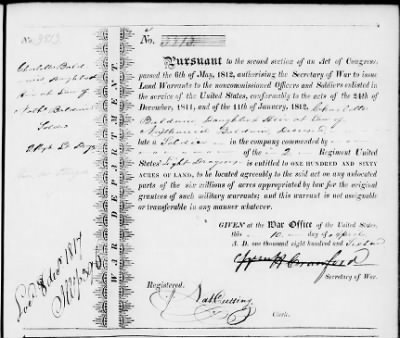 No. 3313
Charlotte Bald
win Daughter &
Heir at Law of
Nathl Baldwin
2 Regt Lt Drgs
Located 8 decr 1817
WAR DEPARTMENT.
No. 3313
PURSUANT to the second section of an Act of Congress
passed the 6th of May, 1812, authorising the Secretary of War to issue
Land Warrants to the noncommissioned Officers and Soldiers enlisted in
the service of the United States, conformably to the acts of the 24th of
December, 1811, and of the 11th of January, 1812, Charlotte
Baldwin Daughter & Heir at Law of
Nathaniel Baldwin, deceased
late a Soldier in the company commanded by
of the 2 Regiment United
States' Light Dragoons is entitled to ONE HUNDRED AND SIXTY
ACRES OF LAND, to be located agreeably to the said act on any unlocated
parts of the six millions of acres appropriated by law for the original
grantees of such military warrants; and this warrant is not assignable
or transferable in any manner whatever.
GIVEN at the War Office of the United States,
this 10 day of April
A. D. one thousand eight hundred and Sixteen
Wm H Crawford
Secretary of War.
Registered.
Nat Cutting
Clerk.